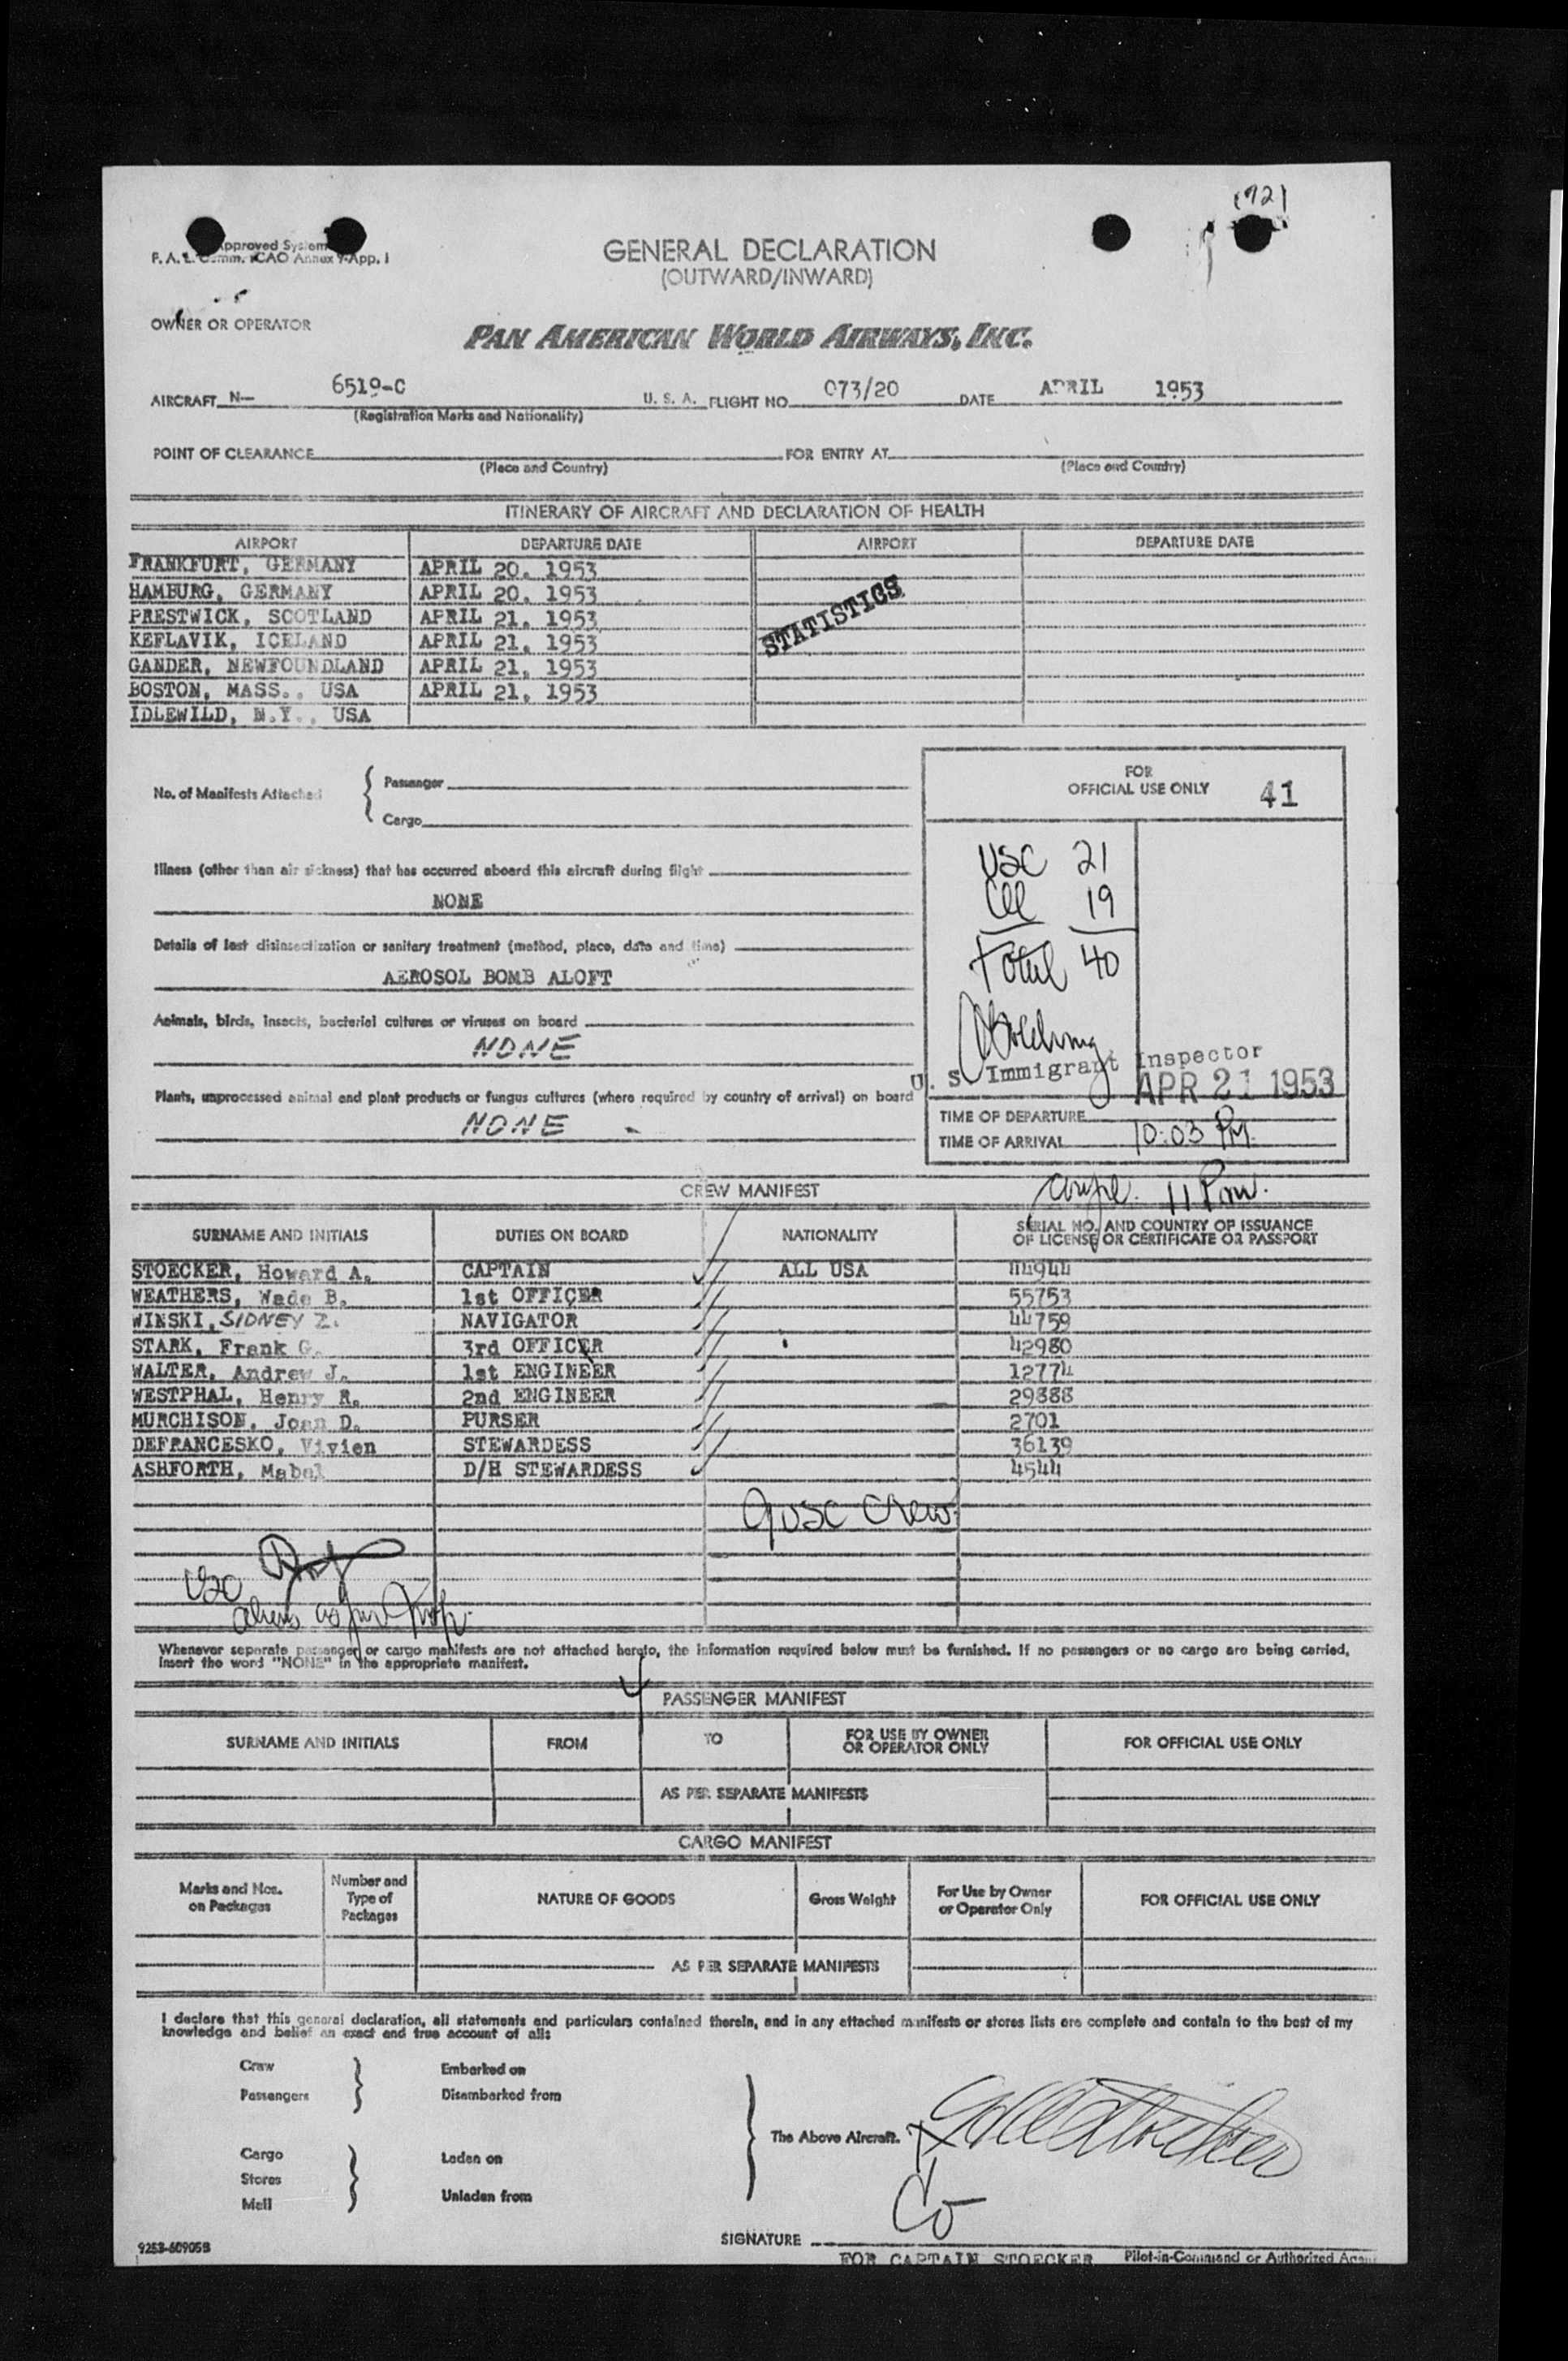 (72)
Approved System
F. A. L. Comm. ICAO Annex 9-App. 1
GENERAL DECLARATION
(OUTWARD/INWARD)
OWNER OR OPERATOR
PAN AMERICAN WORLD AIRWAYS, INC.
AIRCRAFT N— 6519-C U. S. A. FLIGHT NO. 073/20 DATE APRIL 1953
(Registration Marks and Nationality)
POINT OF CLEARANCE FOR ENTRY AT
(Place and Country) (Place and Country)
ITINERARY OF AIRCRAFT AND DECLARATION OF HEALTH
AIRPORT DEPARTURE DATE AIRPORT DEPARTURE DATE
FRANKFURT, GERMANY APRIL 20, 1953
HAMBURG, GERMANY APRIL 20, 1953
PRESTWICK, SCOTLAND APRIL 21, 1953
KEFLAVIK, ICELAND APRIL 21, 1953
GANDER, NEWFOUNDLAND APRIL 21, 1953
BOSTON, MASS., USA APRIL 21, 1953
IDLEWILD, N.Y., USA
STATISTICS
No. of Manifests Attached
Passenger
Cargo
FOR
OFFICIAL USE ONLY 41
USC 21
19
Total 40
Illness (other than air sickness) that has occurred aboard this aircraft during flight
NONE
Details of last disinsectization or sanitary treatment (method, place, date and time)
AEROSOL BOMB ALOFT
Animals, birds, insects, bacterial cultures or viruses on board
NONE
Plants, unprocessed animal and plant products or fungus cultures (where required by country of arrival) on board
NONE
U. S. Immigrant Inspector
APR 21 1953
TIME OF DEPARTURE
TIME OF ARRIVAL 10:03 PM.
CREW MANIFEST
compl. 11 P.M.
SURNAME AND INITIALS DUTIES ON BOARD NATIONALITY SERIAL NO. AND COUNTRY OF ISSUANCE
OF LICENSE OR CERTIFICATE OR PASSPORT
STOECKER, Howard A. CAPTAIN ALL USA 44944
WEATHERS, Wade B. 1st OFFICER 55753
WINSKI, SIDNEY Z. NAVIGATOR 44759
STARK, Frank G. 3rd OFFICER 42980
WALTER, Andrew J. 1st ENGINEER 12774
WESTPHAL, Henry R. 2nd ENGINEER 29888
MURCHISON, Joan D. PURSER 2701
DEFRANCESKO, Vivien STEWARDESS 36139
ASHFORTH, Mabel D/H STEWARDESS 4544
9 USC Crew
USC
Whenever separate passenger or cargo manifests are not attached hereto, the information required below must be furnished. If no passengers or no cargo are being carried,
insert the word "NONE" in the appropriate manifest.
PASSENGER MANIFEST
SURNAME AND INITIALS FROM TO FOR USE BY OWNER
OR OPERATOR ONLY FOR OFFICIAL USE ONLY
AS PER SEPARATE MANIFESTS
CARGO MANIFEST
Marks and Nos.
on Packages Number and
Type of
Packages NATURE OF GOODS Gross Weight For Use by Owner
or Operator Only FOR OFFICIAL USE ONLY
AS PER SEPARATE MANIFESTS
I declare that this general declaration, all statements and particulars contained therein, and in any attached manifests or stores lists are complete and contain to the best of my
knowledge and belief an exact and true account of all:
Crew Embarked on
Passengers Disembarked from
The Above Aircraft.
Cargo Laden on
Stores
Mail Unladen from
SIGNATURE
FOR CAPTAIN STOECKER Pilot-in-Command or Authorized Agent
9253-60905B